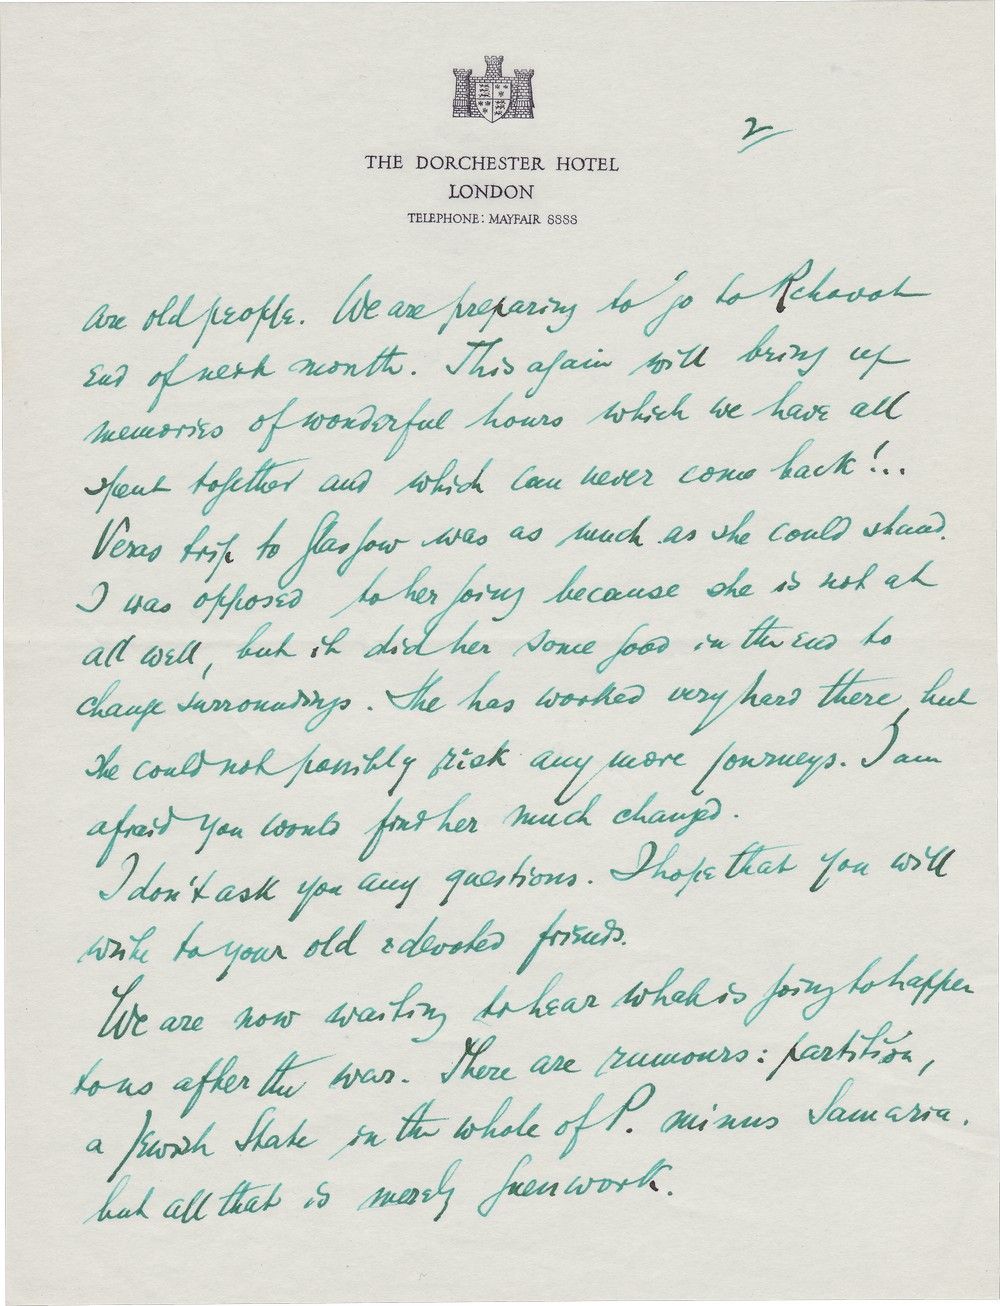 2
THE DORCHESTER HOTEL
LONDON
TELEPHONE: MAYFAIR 8888
are old people. We are preparing to go to Rehovoth
end of next month. This again will bring up
memories of wonderful hours which we have all
spent together and which can never come back!..
Veras trip to Glasgow was as much as she could stand.
I was opposed to her going because she is not at
all well, but it did her some good in the end to
change surroundings. She has worked very hard there, but
she could not possibly risk any more journeys. I am
afraid you would find her much changed.
I don't ask you any questions. I hope that you will
write to your old & devoted friends.
We are now waiting to hear what is going to happen
to us after the war. There are rumours: partition,
a Jewish State in the whole of P. minus Samaria.
but all that is merely guesswork.